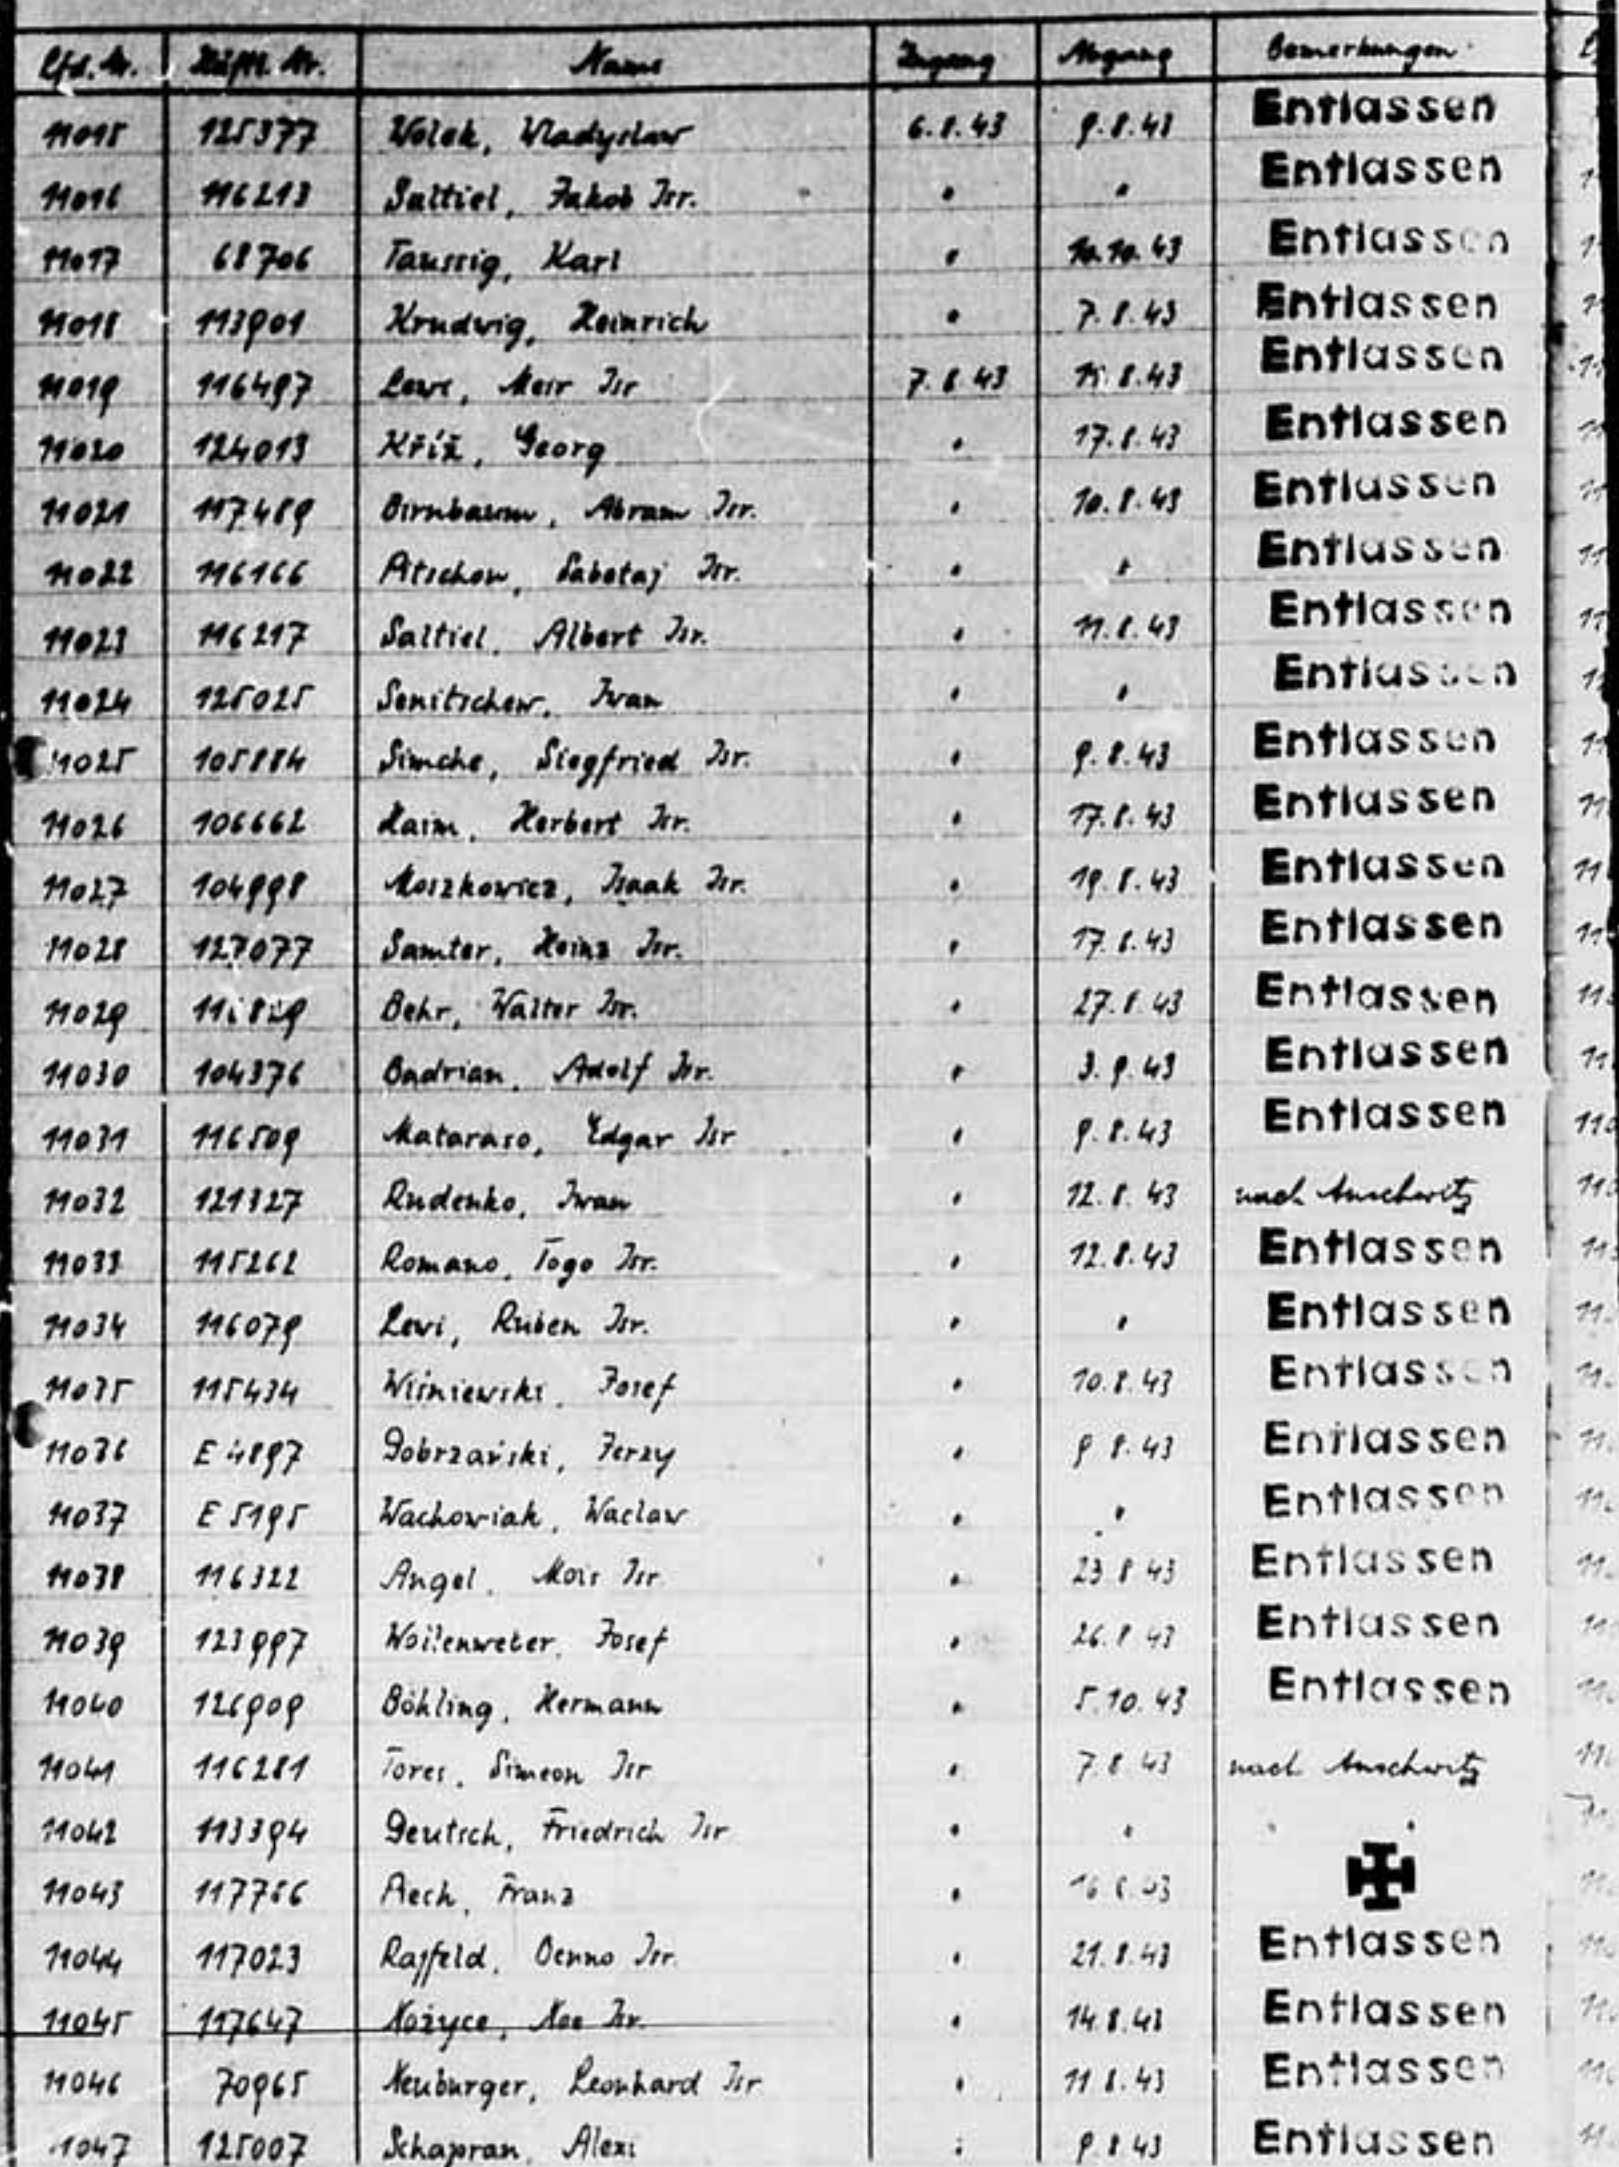 Lfd. Nr. Häftl. Nr. Name Zugang Abgang Bemerkungen
11015 125377 Wolek, Wladyslaw 6.8.43 9.8.43 Entlassen
11016 116213 Saltiel, Jakob Isr. " " Entlassen
11017 68706 Taussig, Karl " 10.10.43 Entlassen
11018 113901 Krudwig, Heinrich " 7.8.43 Entlassen
11019 116497 Lewi, Meir Isr 7.8.43 15.8.43 Entlassen
11020 124013 Kříž, Georg " 17.8.43 Entlassen
11021 117489 Birnbaum, Abram Isr. " 10.8.43 Entlassen
11022 116166 Atschow, Sabetaj Isr. " " Entlassen
11023 116217 Saltiel, Albert Isr. " 11.8.43 Entlassen
11024 125025 Senitschew, Iwan " " Entlassen
11025 105884 Simche, Siegfried Isr. " 9.8.43 Entlassen
11026 106662 Haim, Herbert Isr. " 17.8.43 Entlassen
11027 104998 Moszkowicz, Isaak Isr. " 19.8.43 Entlassen
11028 127077 Samter, Heinz Isr. " 17.8.43 Entlassen
11029 Behr, Walter Isr. " 27.8.43 Entlassen
11030 104376 Badrian, Adolf Isr. " 3.9.43 Entlassen
11031 116509 Mataraso, Edgar Isr " 9.8.43 Entlassen
11032 121327 Rudenko, Iwan " 12.8.43 nach Auschwitz
11033 115262 Romano, Togo Isr. " 12.8.43 Entlassen
11034 116079 Lewi, Ruben Isr. " " Entlassen
11035 115434 Wiśniewski, Josef " 10.8.43 Entlassen
11036 E 4897 Dobrzański, Jerzy " 9 8.43 Entlassen
11037 E 5195 Wachowiak, Waclaw " " Entlassen
11038 116322 Angel, Mois Isr " 23 8 43 Entlassen
11039 123997 Wollenweber, Josef " 26.8 43 Entlassen
11040 126909 Böhling, Hermann " 5.10.43 Entlassen
11041 116281 Tores, Simeon Isr " 7.8 43 nach Auschwitz
11042 113394 Deutsch, Friedrich Isr " " " "
11043 117786 Aech, Franz " 16 8 43
11044 117023 Rajfeld, Benno Isr. " 21.8.43 Entlassen
11045 117647 Nożyce, Noe Isr. " 14.8.43 Entlassen
11046 70965 Neuburger, Leonhard Isr " 11 8.43 Entlassen
11047 125007 Schapran, Alexi " 9.8 43 Entlassen